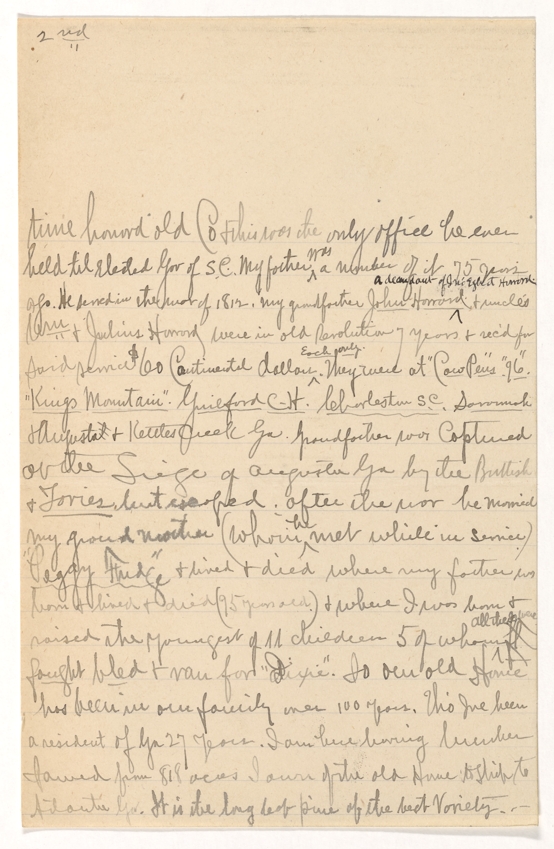 2nd
time honord old Co & this was the only office he ever
held til elected Gov of S.C. My father was a member of it 75 years
ago. He served in the war of 1812. my grandfather John Howard a decendant of & uncles
& Julius Howard were in old Revolution 7 years & rec'd for
said service $60 Continental dollars. Each only. They were at "Cow Pens" "96".
"Kings Mountain". Guilford C.H. Charleston S.C. Savannah
& Augusta & Kettle Creek Ga. Grandfather was Captured
at the Siege of Augusta Ga by the Brittish
& Tories, but escaped. after the war he married
my grand mother (whom he met while in service)
"Peggy & lived & died where my father was
born & lived & died (95 years old.) & where I was born &
raised the youngest of 11 children 5 of whom all they were
fought bled & ran for "Dixie". So our old Home
has been in our family over 100 years. Tho I've been
a resident of Ga 27 years. I am here having lumber
sawed from 818 acres I own of the old Home to ship to
Atlanta Ga. It is the long leaf pine of the best Variety. -